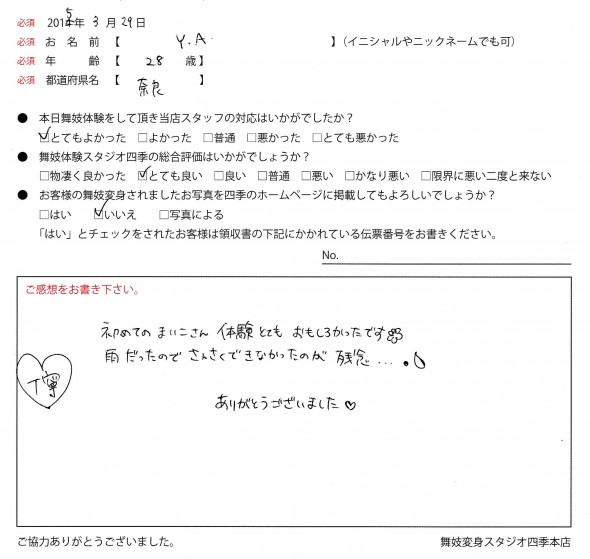 必須 2015年 3月 29日
必須 お名前【 Y.A. 】（イニシャルやニックネームでも可）
必須 年 齢【 28 歳】
必須 都道府県名【 奈良 】
● 本日舞妓体験をして頂き当店スタッフの対応はいかがでしたか？
☑とてもよかった □よかった □普通 □悪かった □とても悪かった
● 舞妓体験スタジオ四季の総合評価はいかがでしょうか？
□物凄く良かった ☑とても良い □良い □普通 □悪い □かなり悪い □限界に悪い二度と来ない
● お客様の舞妓変身されましたお写真を四季のホームページに掲載してもよろしでしょうか？
□はい ☑いいえ □写真による
「はい」とチェックをされたお客様は領収書の下記にかかれている伝票番号をお書きください。
No.
ご感想をお書き下さい。
初めての まいこさん 体験とても おもしろかったです
雨だったので さんさくできなかったのが 残念…。
丁寧
ありがとうございました♡
ご協力ありがとうございました。 舞妓変身スタジオ四季本店